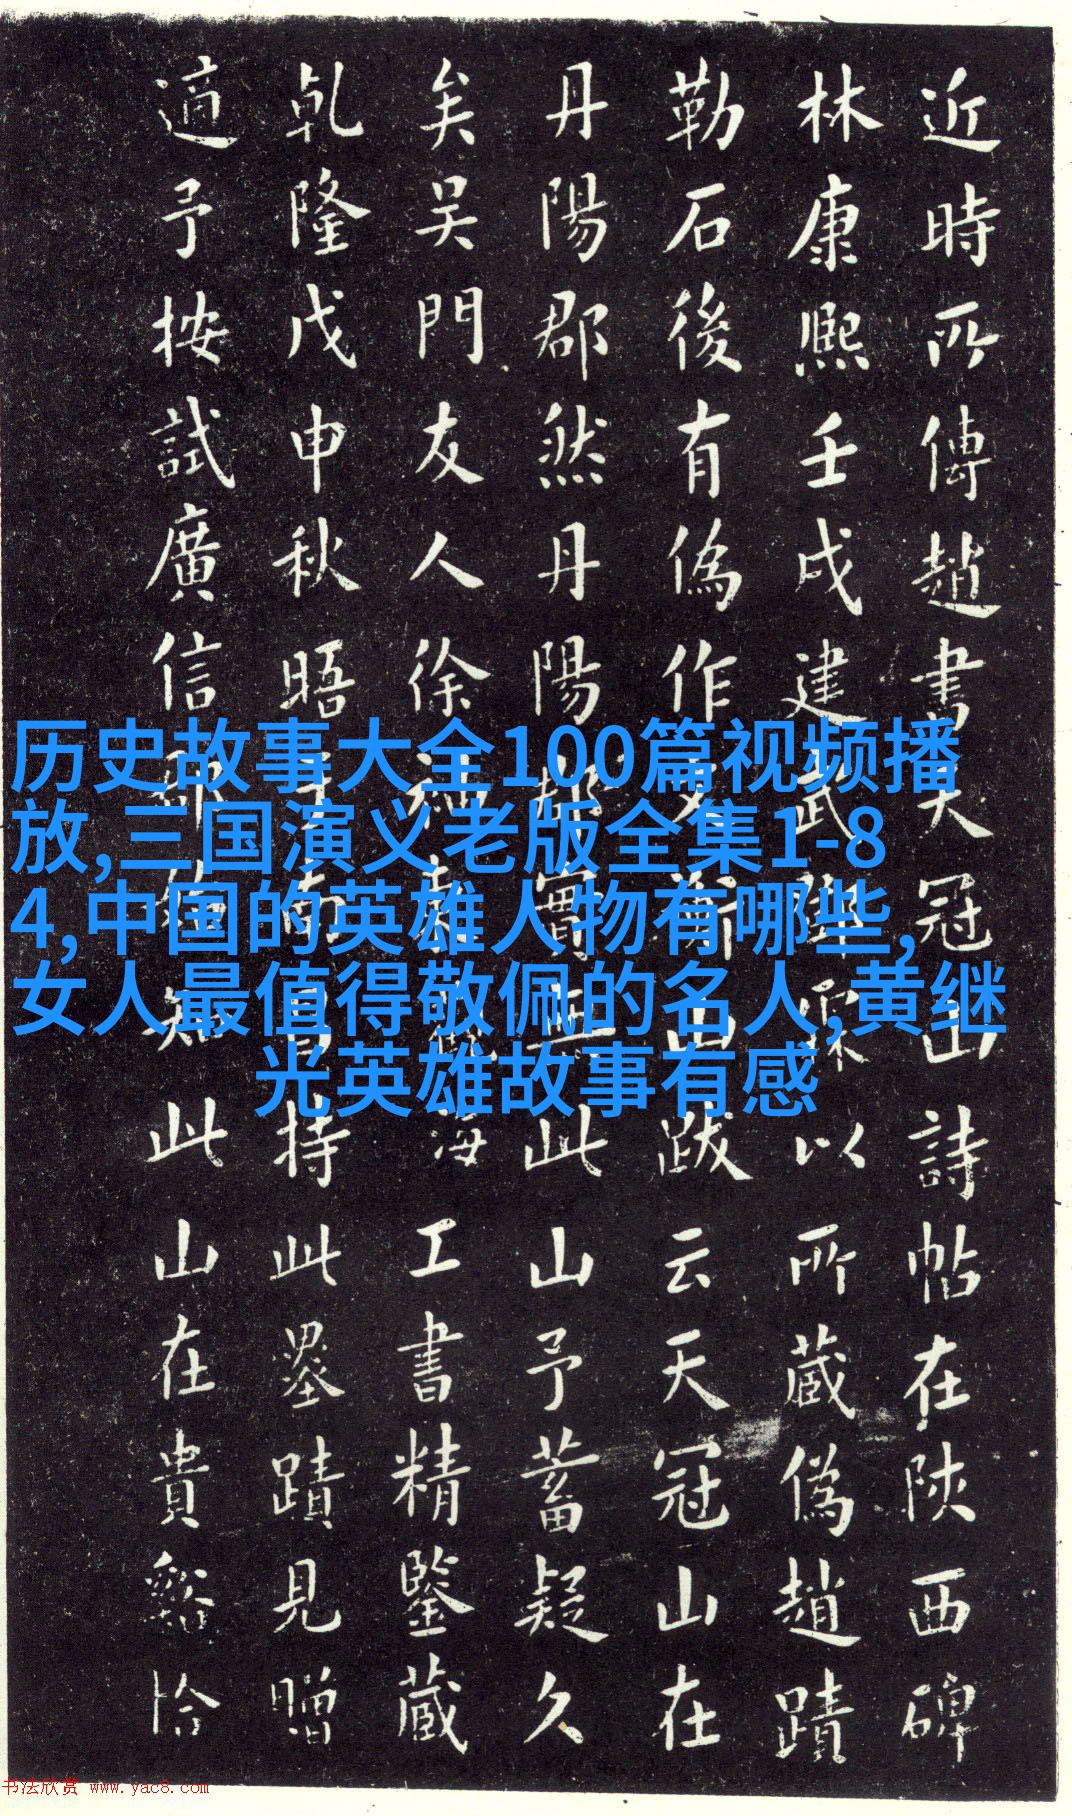 近時所傳趙書天冠山詩帖在陝西碑
林康熙壬戌建武以所藏偽趙蹟
勒石後有偽作文衡山跋云天冠山在
丹陽郡然丹陽郡實無此山予蓄疑久
矣吳門友人徐海工書精鑒藏
乾隆戊申秋晤于南昌持此墨蹟見贈
適予按試廣信郡始知此山在貴谿恰
历史故事大全100篇视频播
放,三国演义老版全集1-8
4,中国的英雄人物有哪些,
女人最值得敬佩的名人,黄继
光英雄故事有感
书法欣赏 www.yac8.com